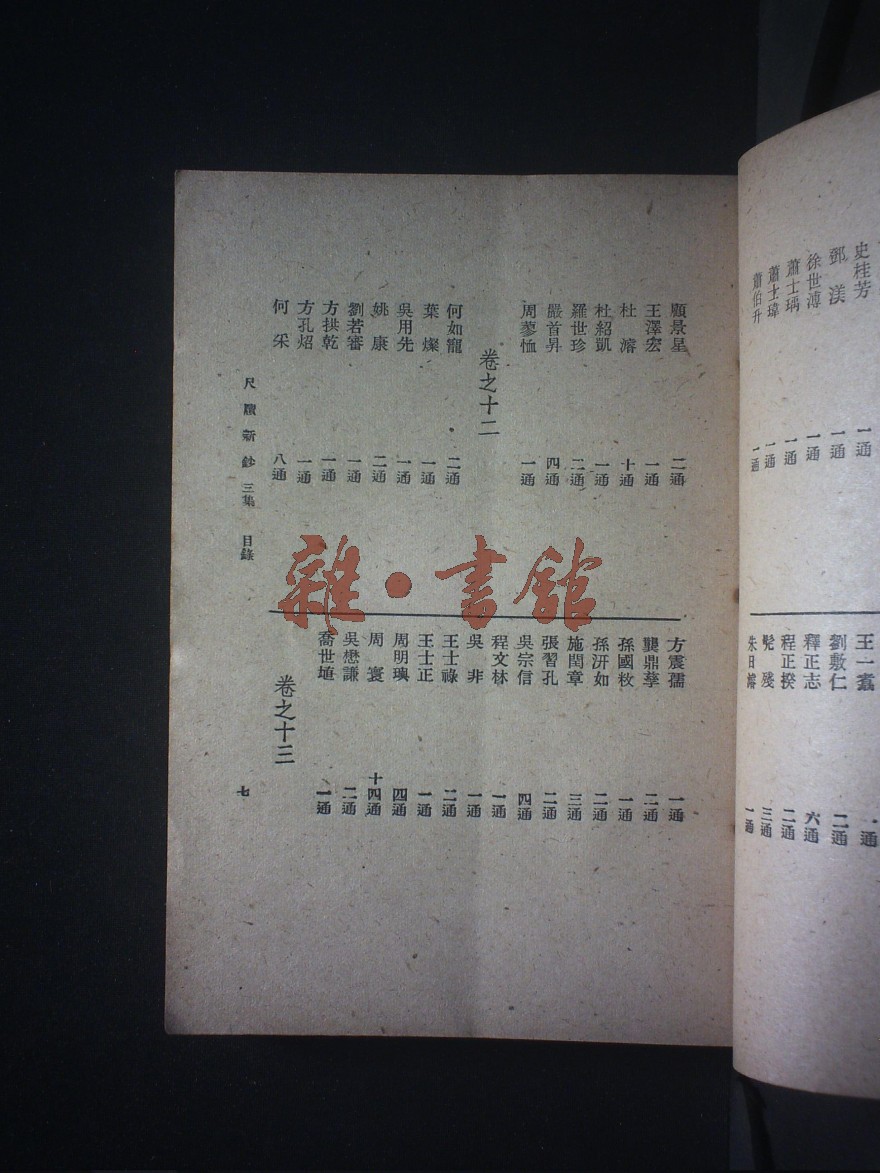 史桂芳 一通
鄧渼 一通
徐世溥 一通
蕭士瑀 一通
蕭士瑋 一通
蕭伯升 一通
王一翥 一通
劉敷仁 二通
釋正志 六通
程正揆 二通
髡殘 三通
朱日濬 一通
顧景星 二通
王澤宏 一通
杜濬 十通
杜紹凱 一通
羅世珍 二通
嚴首昇 四通
周蓼恤 一通
卷之十二
何如寵 二通
葉燦 一通
吳用先 一通
姚康 二通
劉若審 一通
方拱乾 一通
方孔炤 一通
何采 八通
方震孺 一通
龔鼎孳 二通
孫國敉 一通
孫汧如 二通
施閏章 三通
張習孔 二通
吳宗信 四通
程文林 一通
吳非 一通
王士祿 二通
王士正 一通
周明瑛 四通
周寰 十四通
吳懋謙 二通
喬世埴 一通
卷之十三
尺牘新鈔 三集 目錄
七
雜·書館